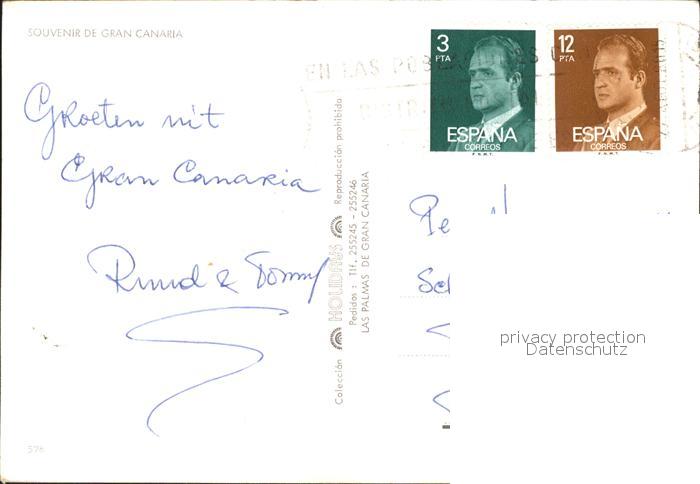 SOUVENIR DE GRAN CANARIA
Groeten uit
Gran Canaria
Ruud & Tonny
576
Colección HOLIDAYS Reproducción prohibida
Pedidos: Tlf. 255245 - 255246
LAS PALMAS DE GRAN CANARIA
3
PTA
ESPAÑA
CORREOS
F.N.M.T.
12
PTA
ESPAÑA
CORREOS
F.N.M.T.
EN LAS
privacy protection
Datenschutz